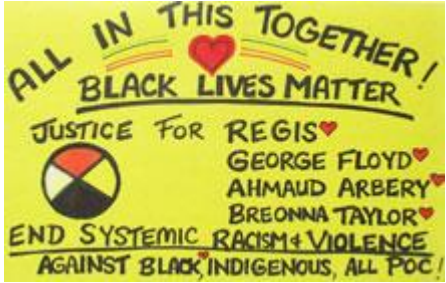 ALL IN THIS TOGETHER!
BLACK LIVES MATTER
JUSTICE FOR REGIS
GEORGE FLOYD
AHMAUD ARBERY
BREONNA TAYLOR
END SYSTEMIC RACISM & VIOLENCE
AGAINST BLACK, INDIGENOUS, ALL POC!